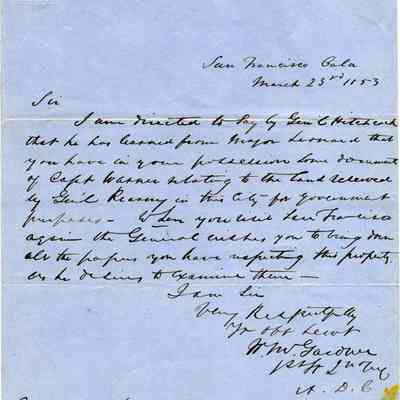 San Francisco Cala
March 23rd 1853
Sir
I am directed to say by Genl Hitchcock
that he has learned from Major Leonard that
you have in your possession some document
of Capt Warner relating to the land reserved
by Genl Kearny in this City for government
purposes - When you visit San Francisco
again the General wishes you to bring down
all the papers you have respecting this property
as he desires to examine them -
I am Sir
Very Respectfully
Yr obt Servt
W. M. Gardner
A. D. C